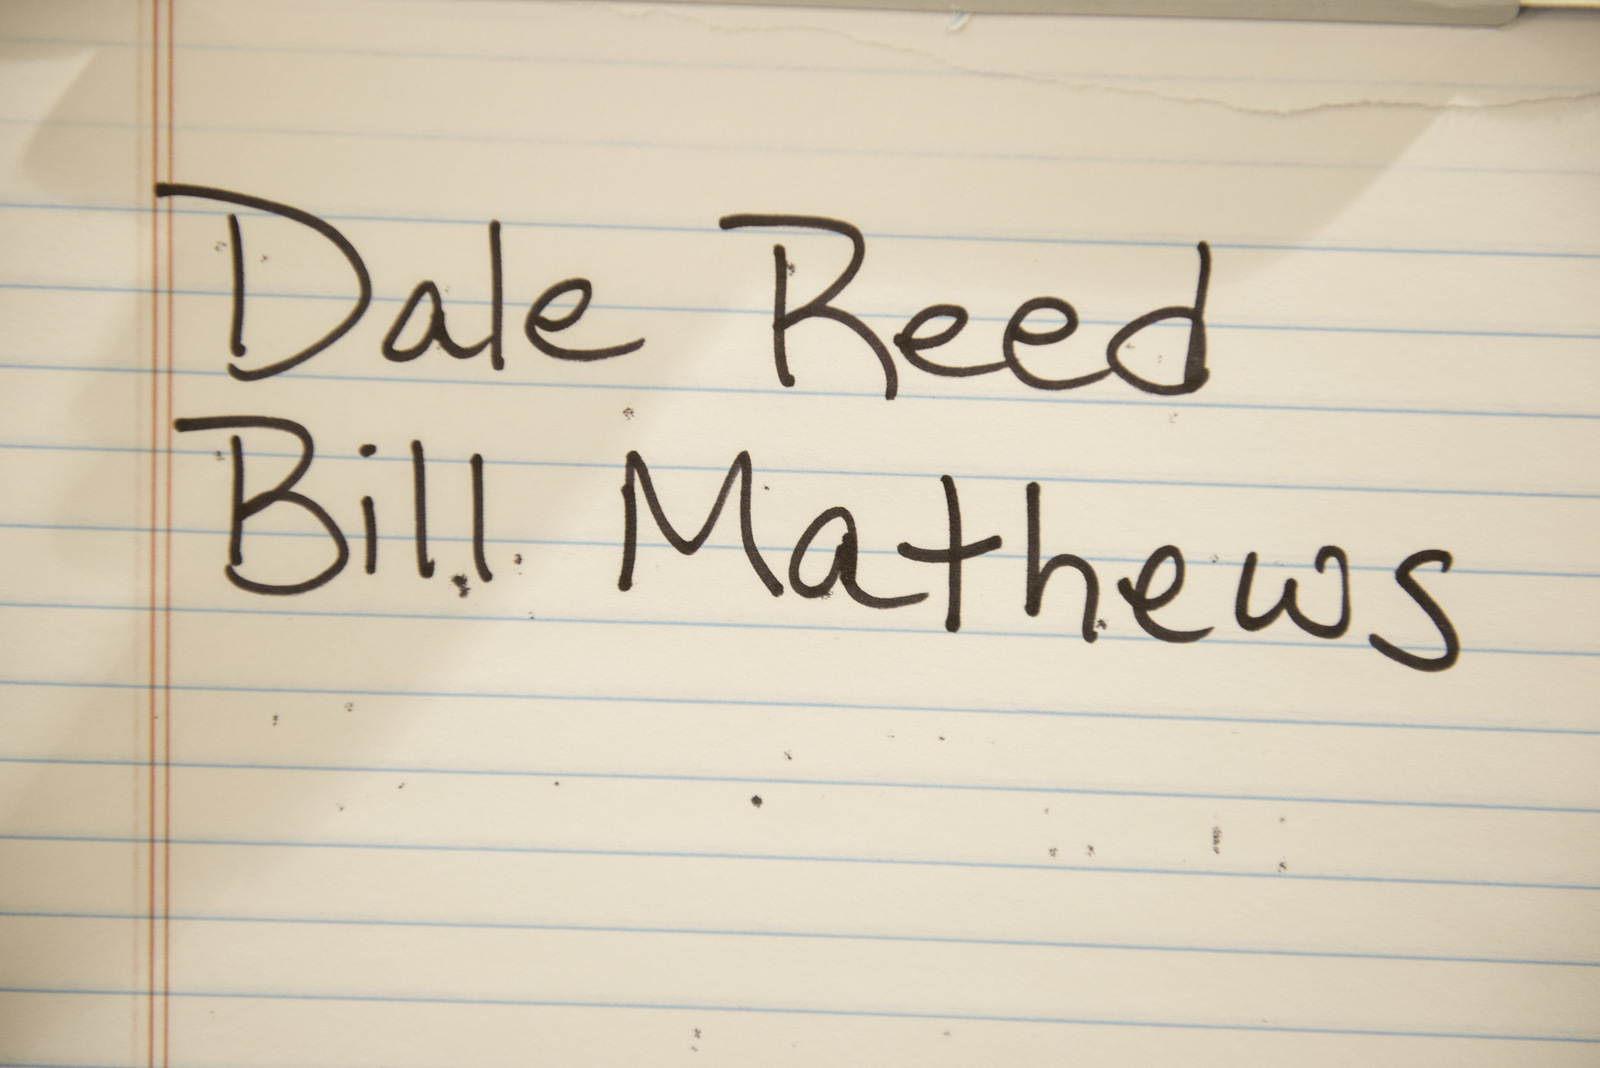 Dale Reed
Bill Mathews